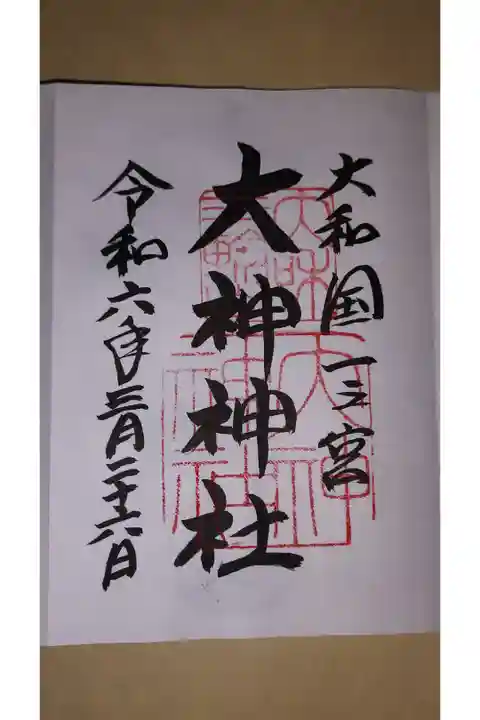 大和国一之宮
大神神社
令和六年三月二十六日
大神
神社